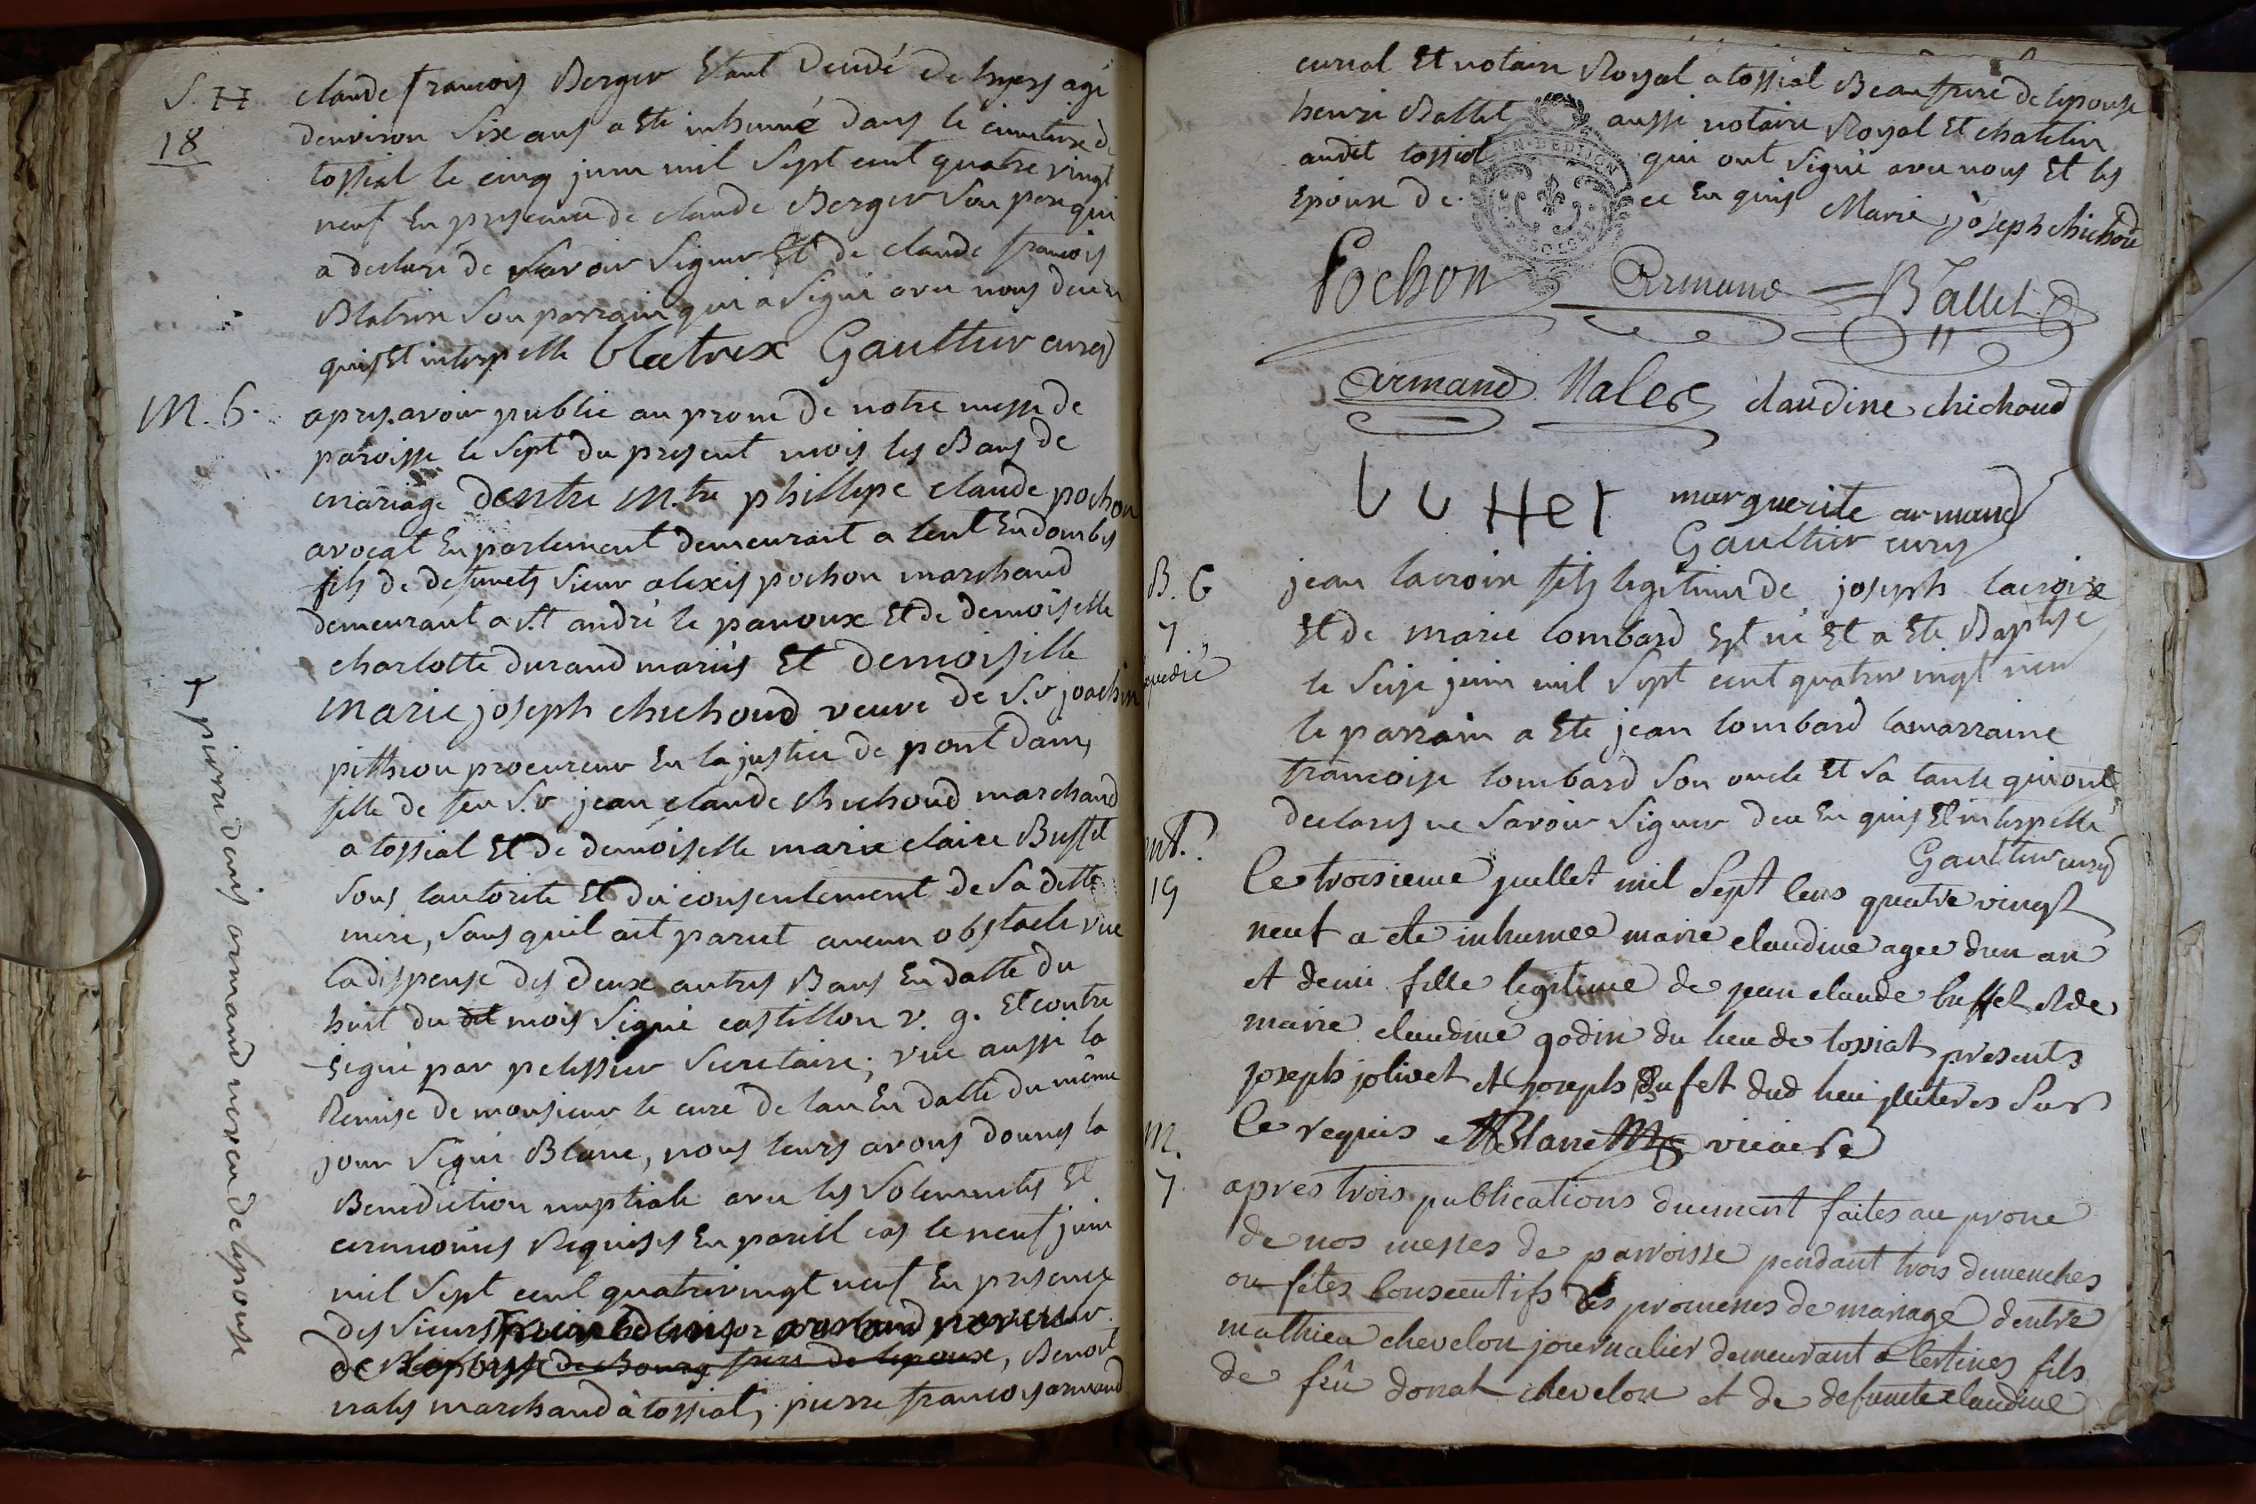 S. H
18
claude francois Berger Etant decedé de hyers agé
denviron Six ans a Ete inhumé dans le cimetiere de
tossial le cinq juin mil Sept cent quatre vingt
neuf En presence de claude Berger Son pere qui
a declaré de Savoir Signer Et de claude francois
Blatrix Son parrain qui a Signé avec nous de
quis Et interpelle blatrix Gaultier curé
M. 6.
apres avoir publié au prone de notre messe de
paroisse le Sept du present mois les Bans de
mariage Dentre M.tre phillipe claude pochon
avocat En parlement demeurant a lent En dombes
fils de defunets Sieur alexis pochon marchand
demeurant a S.t andré le panoux Et de demoiselle
charlotte durand mariés Et demoiselle
marie joseph chichoud veuve de S.r joachim
pithiou procureur En la justice de pont dain,
fille de feu S.r jean claude chichoud marchand
a tossial Et de demoiselle marie claire Buffet
Sous lautorite Et du consentement de Sa ditte
mere, Sans quil ait parut aucun obstacle vue
la dispense des deux autres Bans En datte du
huit du dit mois Signé castillon v. g. Et contre
Signé par pelissier Secretaire; vue aussi la
Remise de monsieur le curé de lan En datte du même
jour Signé Blanc, nous leurs avons donnes la
Benediction nuptiale avec les Solemnités Et
ceremonies Requises En pareil cas le neuf juin
mil Sept cent quatrevingt neuf En presence
des Sieurs
de Bourg frere de lepoux, Benoit
nales marchand à tossial, pierre francois armand
+ pierre denis armand neveu de lepouse
curial Et notaire Royal a tossial Beaufrere de lepouse
henri Ballet aussi notaire Royal Et chatelin
audit tossial qui ont Signé avec nous Et les
Epoux de ce En quis Marie joseph chichoud
Pochon Armand Ballet
armand Nales claudine chichoud
buffet marguerite armand
Gaultier curé
B. 6
7
jean lacroix fils legitime de joseph lacroix
Et de marie lombard Est né Et a Ete Baptisé
le Seize juin mil Sept cent quatre vingt neu
le parrain a Ete jean lombard la marraine
francoise lombard Son oncle Et Sa tante qui ont
declares ne Savoir Signer de ce En quis Et interpellé
Gaultier curé
19
Le troisieme juillet mil Sept Cens quatre vingt
neuf a ete inhumee marie claudine agee dun an
et demi fille legitime de jean claude buffet et de
marie claudine godin du lieu de tossiat presents
joseph jolivet et joseph Bufet dud lieu illiteres Sur
Ce requis Blanc vicaire
M.
7
apres trois publications duement faites au prone
de nos messes de parroisse pendant trois dimenches
ou fêtes Consecutifs des promesses de mariage dentre
mathieu chevelon journalier demeurant a Certines fils
de feû donat chevelon et de defunte claudine